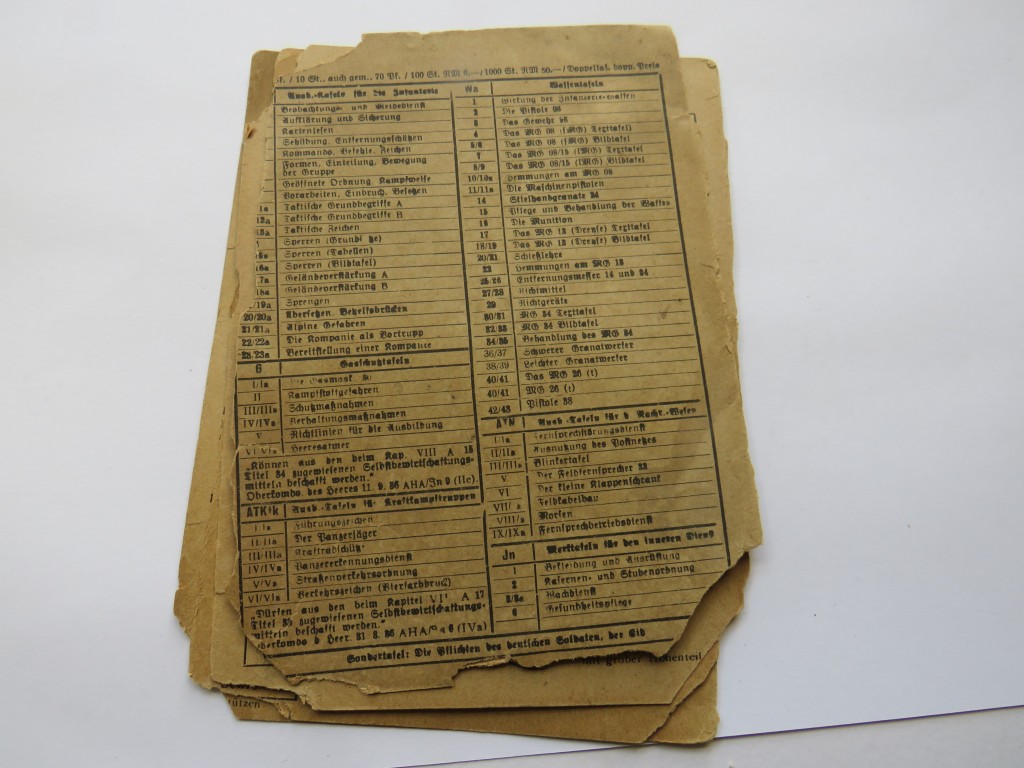 / 10 St., auch gem., 70 Pf. / 100 St. RM 6,—/1000 St. RM 50.—/Doppeltaf. dopp. Preis
Ausb.-Tafeln für die Infanterie
Beobachtungs- und Meldedienst
Aufklärung und Sicherung
Kartenlesen
Sehübung, Entfernungsschätzen
Kommando, Befehle, Zeichen
Formen, Einteilung, Bewegung
der Gruppe
Geöffnete Ordnung, Kampfweise
Vorarbeiten, Einbruch, Besetzen
Taktische Grundbegriffe A
12a Taktische Grundbegriffe B
13a Taktische Zeichen
Sperren
Sperren (Tabellen)
16a Sperren (Bildtafel)
17a Geländeverstärkung A
18a Geländeverstärkung B
19a Sprengen
20/20a Übersetzen, Behelfsbrücken
21/21a Alpine Gefahren
22/22a Die Kompanie als Vortrupp
23/23a Bereitstellung einer Kompanie
G Gasschutztafeln
I/Ia Die Gasmaske 30
II Kampfstoffgefahren
III/IIIa Schutzmaßnahmen
IV/IVa Verhaltungsmaßnahmen
V Richtlinien für die Ausbildung
VI/VIa Heeresatmer
„Können aus den beim Kap. VIII A 15
Titel 34 zugewiesenen Selbstbewirtschaftungs-
mitteln beschafft werden.“
Oberkomdo. des Heeres 11. 9. 36 AHA/Jn 9 (IIc).
ATKfk Ausb.-Tafeln für Kraftkampftruppen
I/Ia Führungszeichen
II/IIa Der Panzerjäger
III/IIIa Kraftradschütz
IV/IVa Panzererkennungsdienst
V/Va Straßenverkehrsordnung
VI/VIa Verkehrszeichen (Vierfarbdruck)
„Dürfen aus den beim Kapitel VIII A 17
Titel 35 zugewiesenen Selbstbewirtschaftungs-
mitteln beschafft werden.“
Oberkomdo d Heer. 31 8. 36 AHA/Jn 6 (IVa)
Wa Waffentafeln
1 Wirkung der Infanterie-Waffen
2 Die Pistole 08
3 Das Gewehr 98
4 Das MG 08 (sMG) Texttafel)
5/6 Das MG 08 (sMG) Bildtafel)
7 Das MG 08/15 (lMG) Texttafel)
8/9 Das MG 08/15 (lMG) Bildtafel)
10/10a Hemmungen am MG 08
11/11a Die Maschinenpistolen
14 Stielhandgranate 24
15 Pflege und Behandlung der Waffen
16 Die Munition
17 Das MG 13 (Dreyse) Texttafel
18/19 Das MG 13 (Dreyse) Bildtafel
20/21 Schießlehre
22 Hemmungen am MG 13
25/26 Entfernungsmesser 14 und 34
27/28 Richtmittel
29 Richtgeräte
30/31 MG 34 Texttafel
32/33 MG 34 Bildtafel
34/35 Behandlung des MG 34
36/37 Schwerer Granatwerfer
38/39 Leichter Granatwerfer
40/41 Das MG 26 (t)
40/41 MG 26 (t)
42/43 Pistole 38
ATN Ausb.-Tafeln für d Nachr.-Wesen
I/Ia Fernsprechstörungsdienst
II/IIa Ausnutzung des Postnetzes
III/IIIa Blinkertafel
V Der Feldfernsprecher 33
VI Der kleine Klappenschrank
VII/ a Feldkabelbau
VIII/a Morsen
IX/IXa Fernsprechbetriebsdienst
Jn Merktafeln für den inneren Dienst
1 Bekleidung und Ausrüstung
2 Kasernen- und Stubenordnung
3/3a Wachdienst
6 Gesundheitspflege
Sondertafel: Die Pflichten des deutschen Soldaten, der Eid
mit großer Höhenteil
ützen